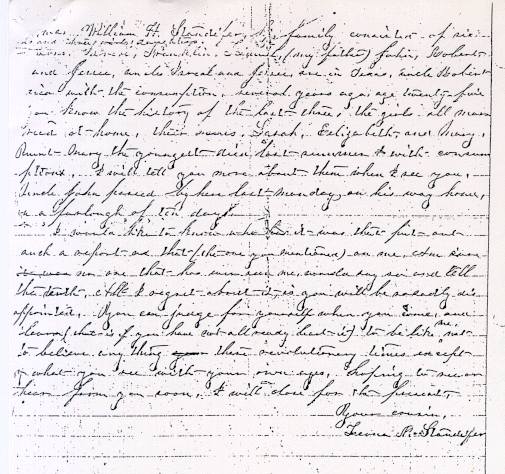 was William H. Standifer, his family consisted of six
sons and three girls, daughters
Israel, Franklin, (my father) John, Robert
and Jesse, uncle Israel and Jesse are in Texas, uncle Robert
died with the consumption, several years ago, age twenty five
you know the history of the last three, the girls all mar-
ried at home, their names, Sarah, Eelizabeth and Mary,
Aunt Mary the youngest died last summer with consum
ption, I will tell you more about them when I see you,
Uncle John passed by here last Monday on his way home,
on a Furlough of ten days
I would like to know who it was that put out
such a report as that (the one you mentioned) on me,
no one that has ever seen me, would say so and tell
the truth, all I regret about it, is you will be so sadly dis
appointed. You can judge for yourself when you come, and
learn (that is if you have not allready learnt it) to be like me not
to believe any thing these revolutionary times except
what you see with your own eyes, hoping to see or
hear from you soon, I will close for the present
Your cousin,
Standifer